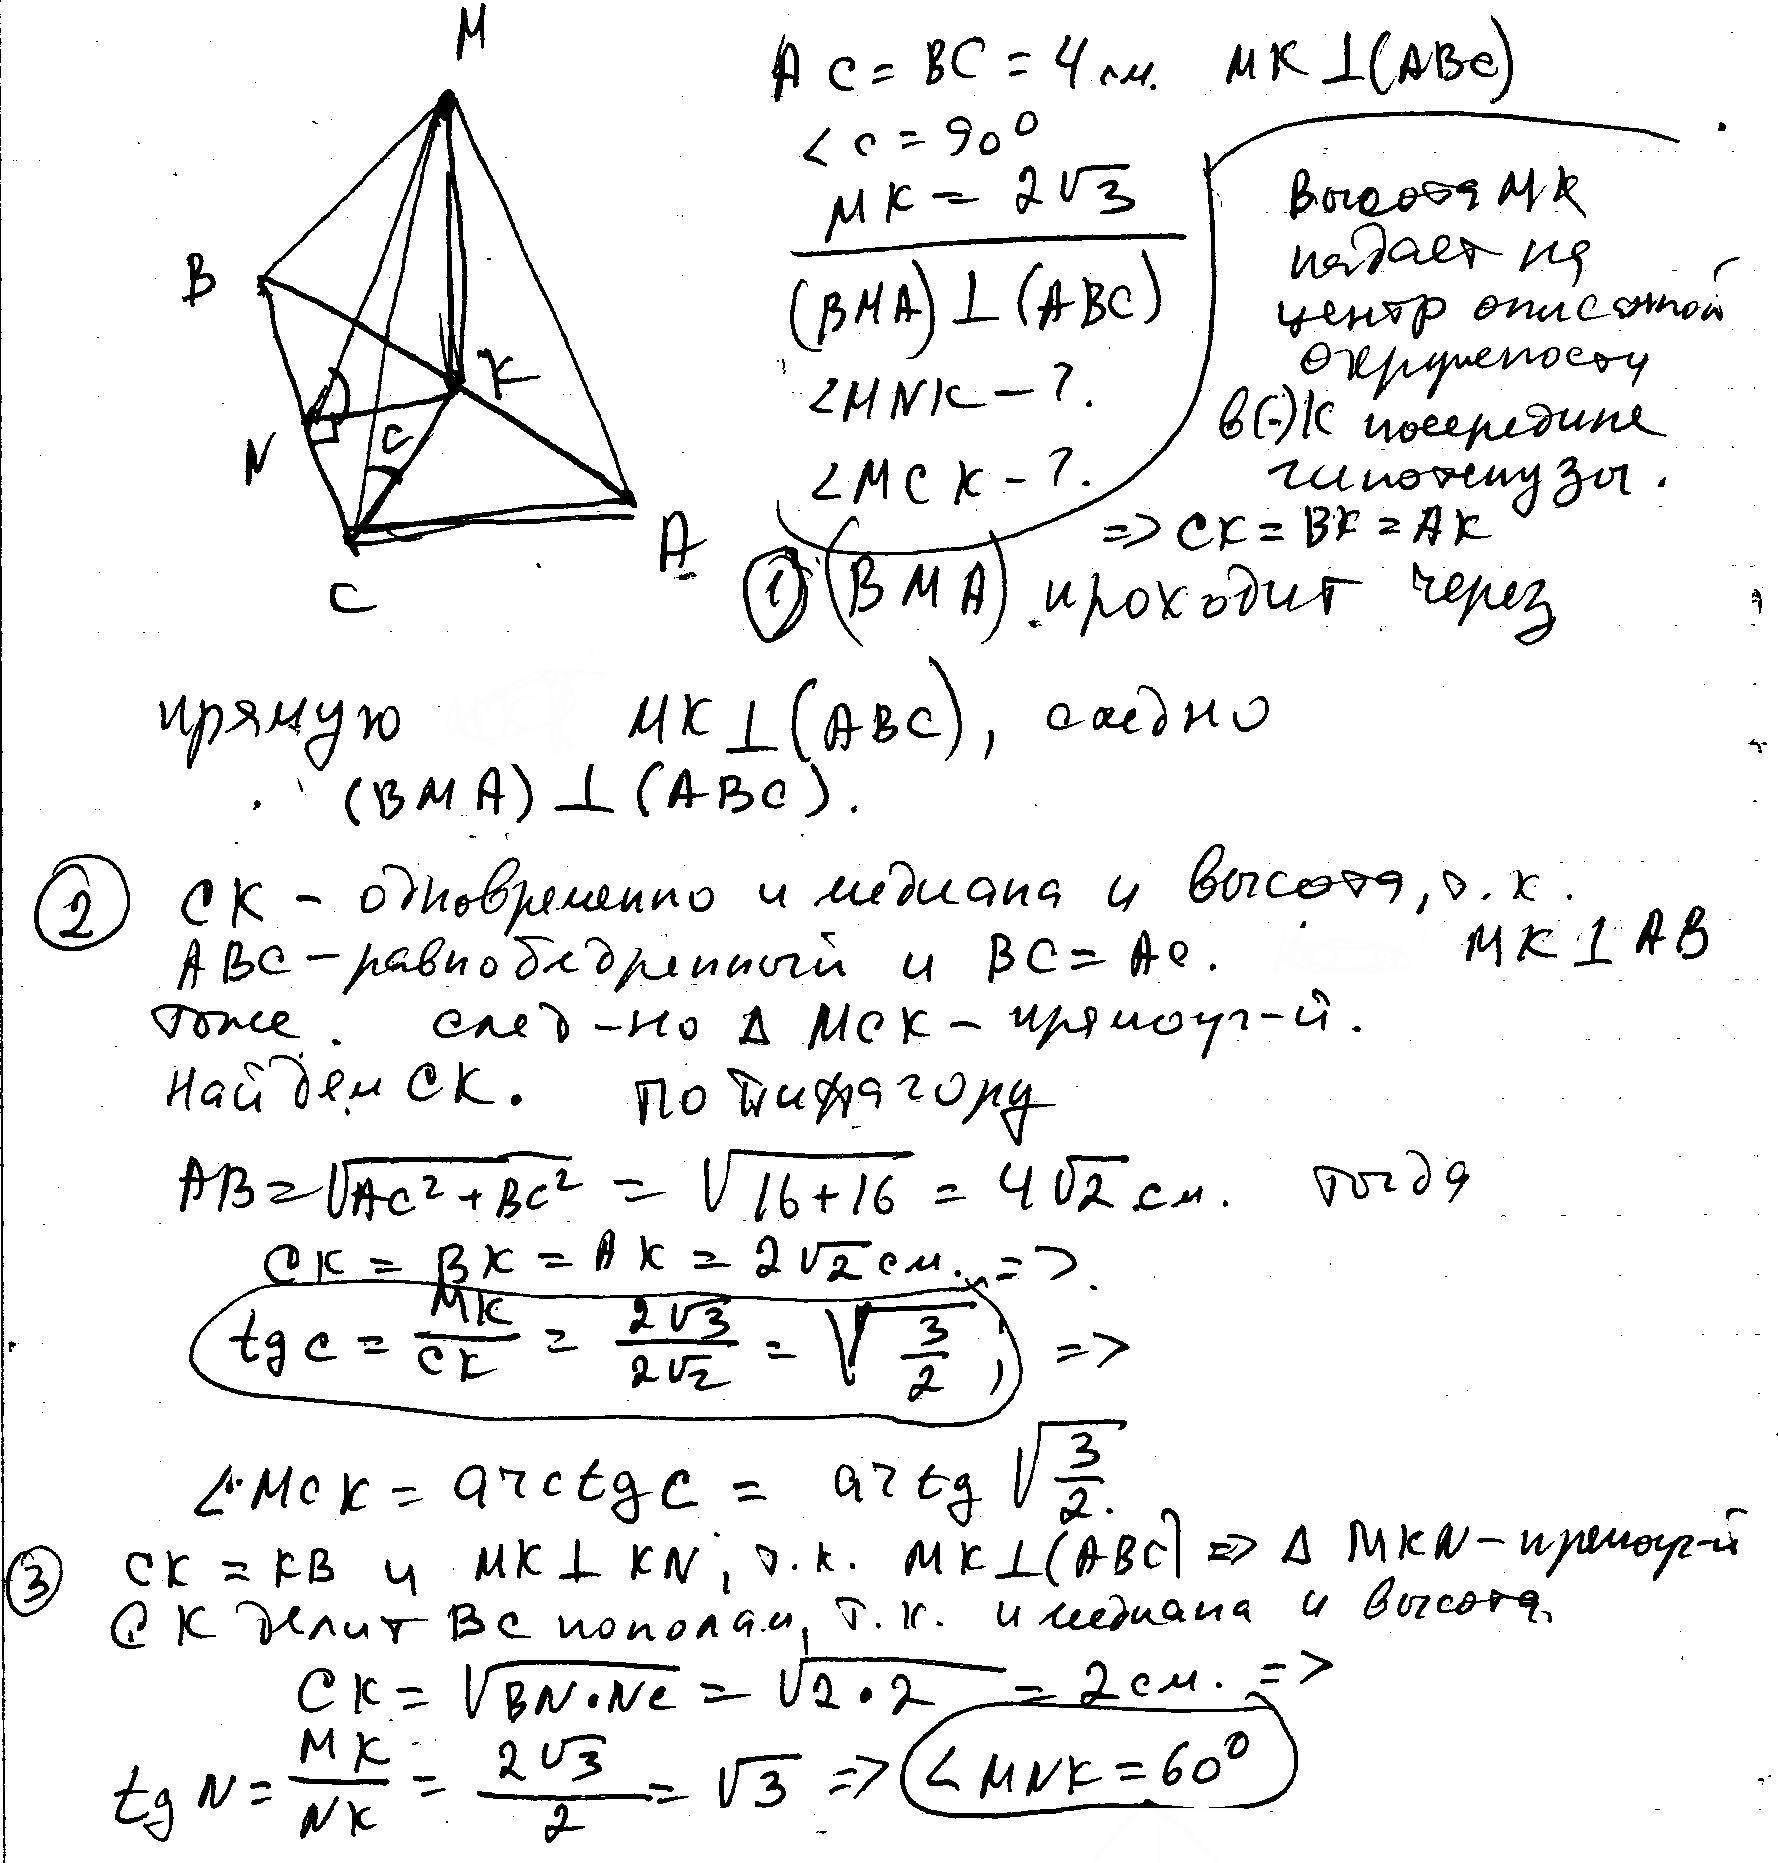 M
B
K
N
C
A
C
AC = BC = 4 см. MK ⊥ (ABC)
∠C = 90°
MK = 2√3
(BMA) ⊥ (ABC)
∠MNK - ?
∠MCK - ?
Высота MK
падает на
центр описанной
окружности
в (·) K посередине
гипотенузы.
=> CK = BK = AK
① (BMA) проходит через
прямую MK ⊥ (ABC), следно
(BMA) ⊥ (ABC).
② CK - одновременно и медиана и высота, т. к.
ABC - равнобедренный и BC = AC. MK ⊥ AB
тоже. след-но Δ MCK - прямоуг-й.
Найдем CK. По Пифагору
AB = √(AC² + BC²) = √(16 + 16) = 4√2 см. тогда
CK = BK = AK = 2√2 см. =>
tg C = MK/CK = 2√3/2√2 = √(3/2), =>
∠MCK = arctg C = arctg √(3/2).
③ CK = KB и MK ⊥ KN, т.к. MK ⊥ (ABC) => Δ MKN - прямоуг-й
CK делит BC пополам, т. к. и медиана и высота.
CK = √(BN · NC) = √(2 · 2) = 2 см. =>
tg N = MK/NK = 2√3/2 = √3 => ∠MNK = 60°